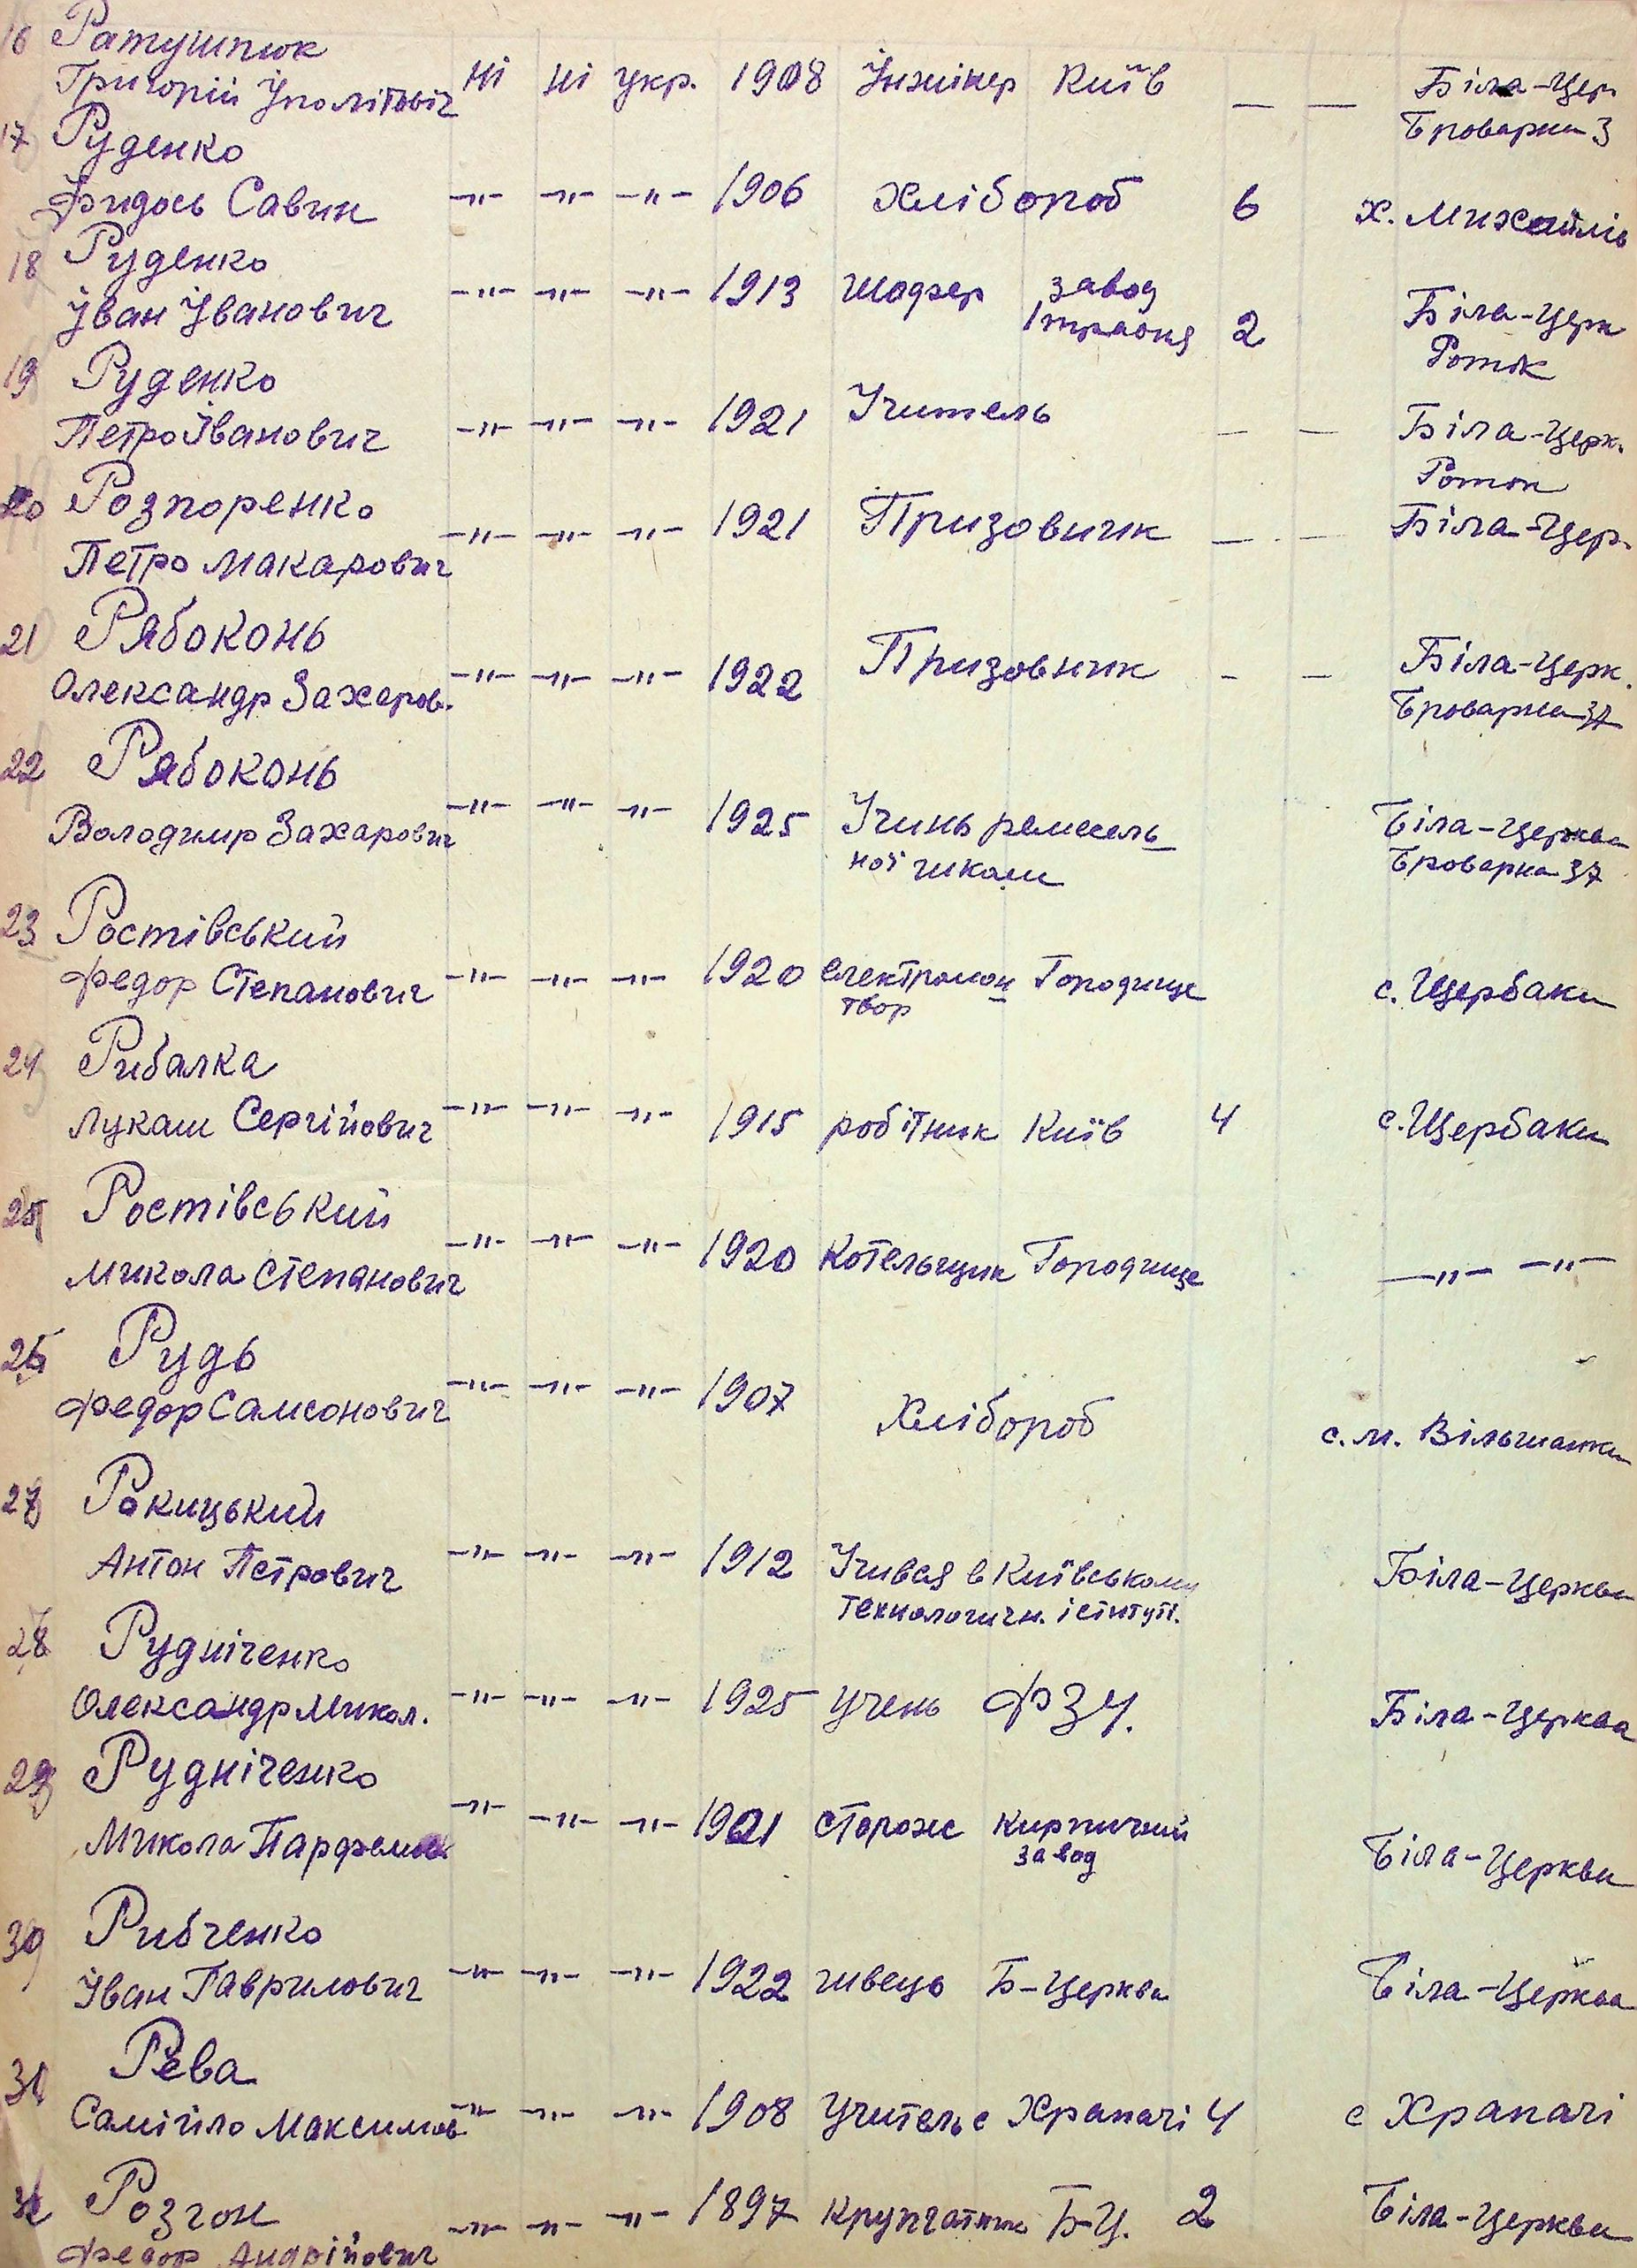 16 Ратушнюк
Григорій Іполітович Ні Ні укр. 1908 Інжінер Київ — — Біла-Цер
Броварна 3
17 Руденко
Фидось Савич -"- -"- -"- 1906 Хлібороб 6 х. Михайлів
18 Руденко
Іван Іванович -"- -"- -"- 1913 шофер завод 2 Біла-Церк
Роток
19 Руденко
Петро Іванович -"- -"- -"- 1921 Учитель — — Біла-Церк.
Роток
20 Розпоренко
Петро Макарович -"- -"- -"- 1921 Призовник — — Біла-Цер.
21 Рябоконь
Олександр Захаров. -"- -"- -"- 1922 Призовник - - Біла-Церк.
Броварна 37
22 Рябоконь
Володимир Захарович -"- -"- -"- 1925 Учинь ремесель Біла-Церква
ної школи Броварна 37
23 Ростівський
Федор Степанович -"- -"- -"- 1920 електромон Городище с. Щербаки
твор
24 Рибалка
Лукаш Сергійович -"- -"- -"- 1915 робітник Київ 4 с. Щербаки
25 Ростівський
Микола Степанович -"- -"- -"- 1920 Котельщик Городище -"- -"-
26 Рудь
Федор Самсонович -"- -"- -"- 1907 Хлібороб с. м. Вільшанка
27 Рокицький
Антон Петрович -"- -"- -"- 1912 Учився в Київському Біла-Церква
технологичн. іститут.
28 Рудніченко
Олександр Микол. -"- -"- -"- 1925 учень ФЗУ. Біла-Церква
29 Рудніченко
Микола Парфемов. -"- -"- -"- 1901 сторож кирпичний Біла-Церква
завод
30 Рибченко
Іван Гаврилович -"- -"- -"- 1922 швець Б-Церква Біла-Церква
31 Рева
Самійло Максимов -"- -"- -"- 1908 Учитель с Храпачі 4 с Храпачі
32 Розгон
Федор Андрійович -"- -"- -"- 1897 крупчатник Б-Ц. 2 Біла-Церква